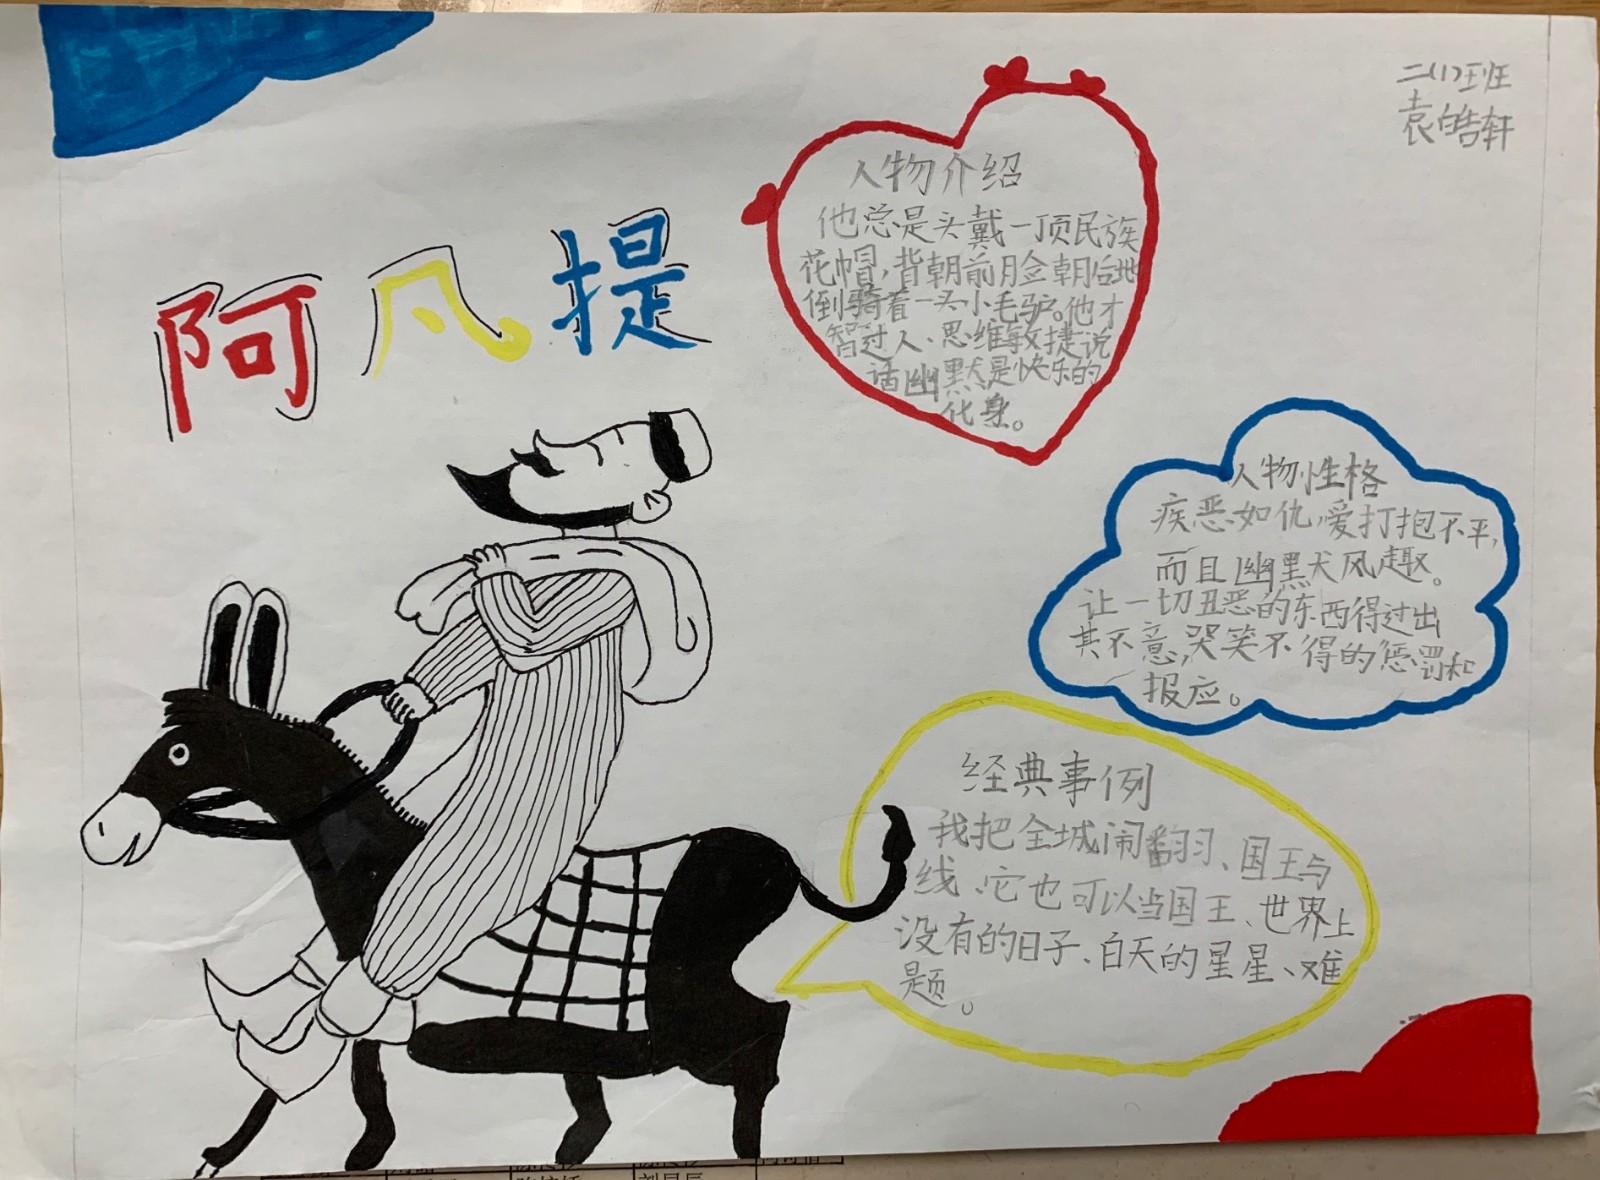 二(1)班
袁皓轩
阿凡提
人物介绍
他总是头戴一顶民族
花帽,背朝前脸朝后地
倒骑着一头小毛驴。他才
智过人、思维敏捷说
话幽默是快乐的
化身。
人物性格
疾恶如仇,爱打抱不平,
而且幽默风趣。
让一切丑恶的东西得过出
其不意,哭笑不得的惩罚和
报应。
经典事例
我把全城闹翻、国王与
线、它也可以当国王、世界上
没有的日子、白天的星星、难
题。